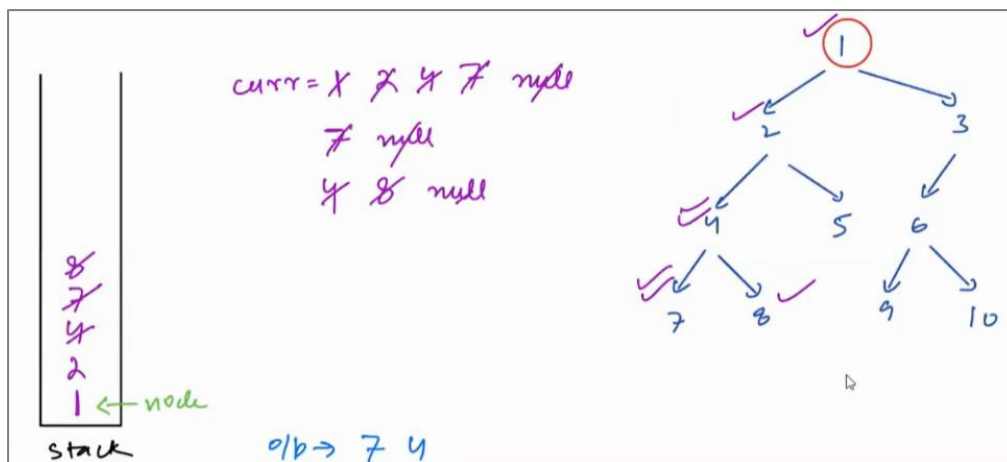 curr = 1 2 4 7 null
7 null
4 8 null
8
7
4
2
1 ← node
stack
o/p → 7 4
1
2 3
4 5 6
7 8 9 10